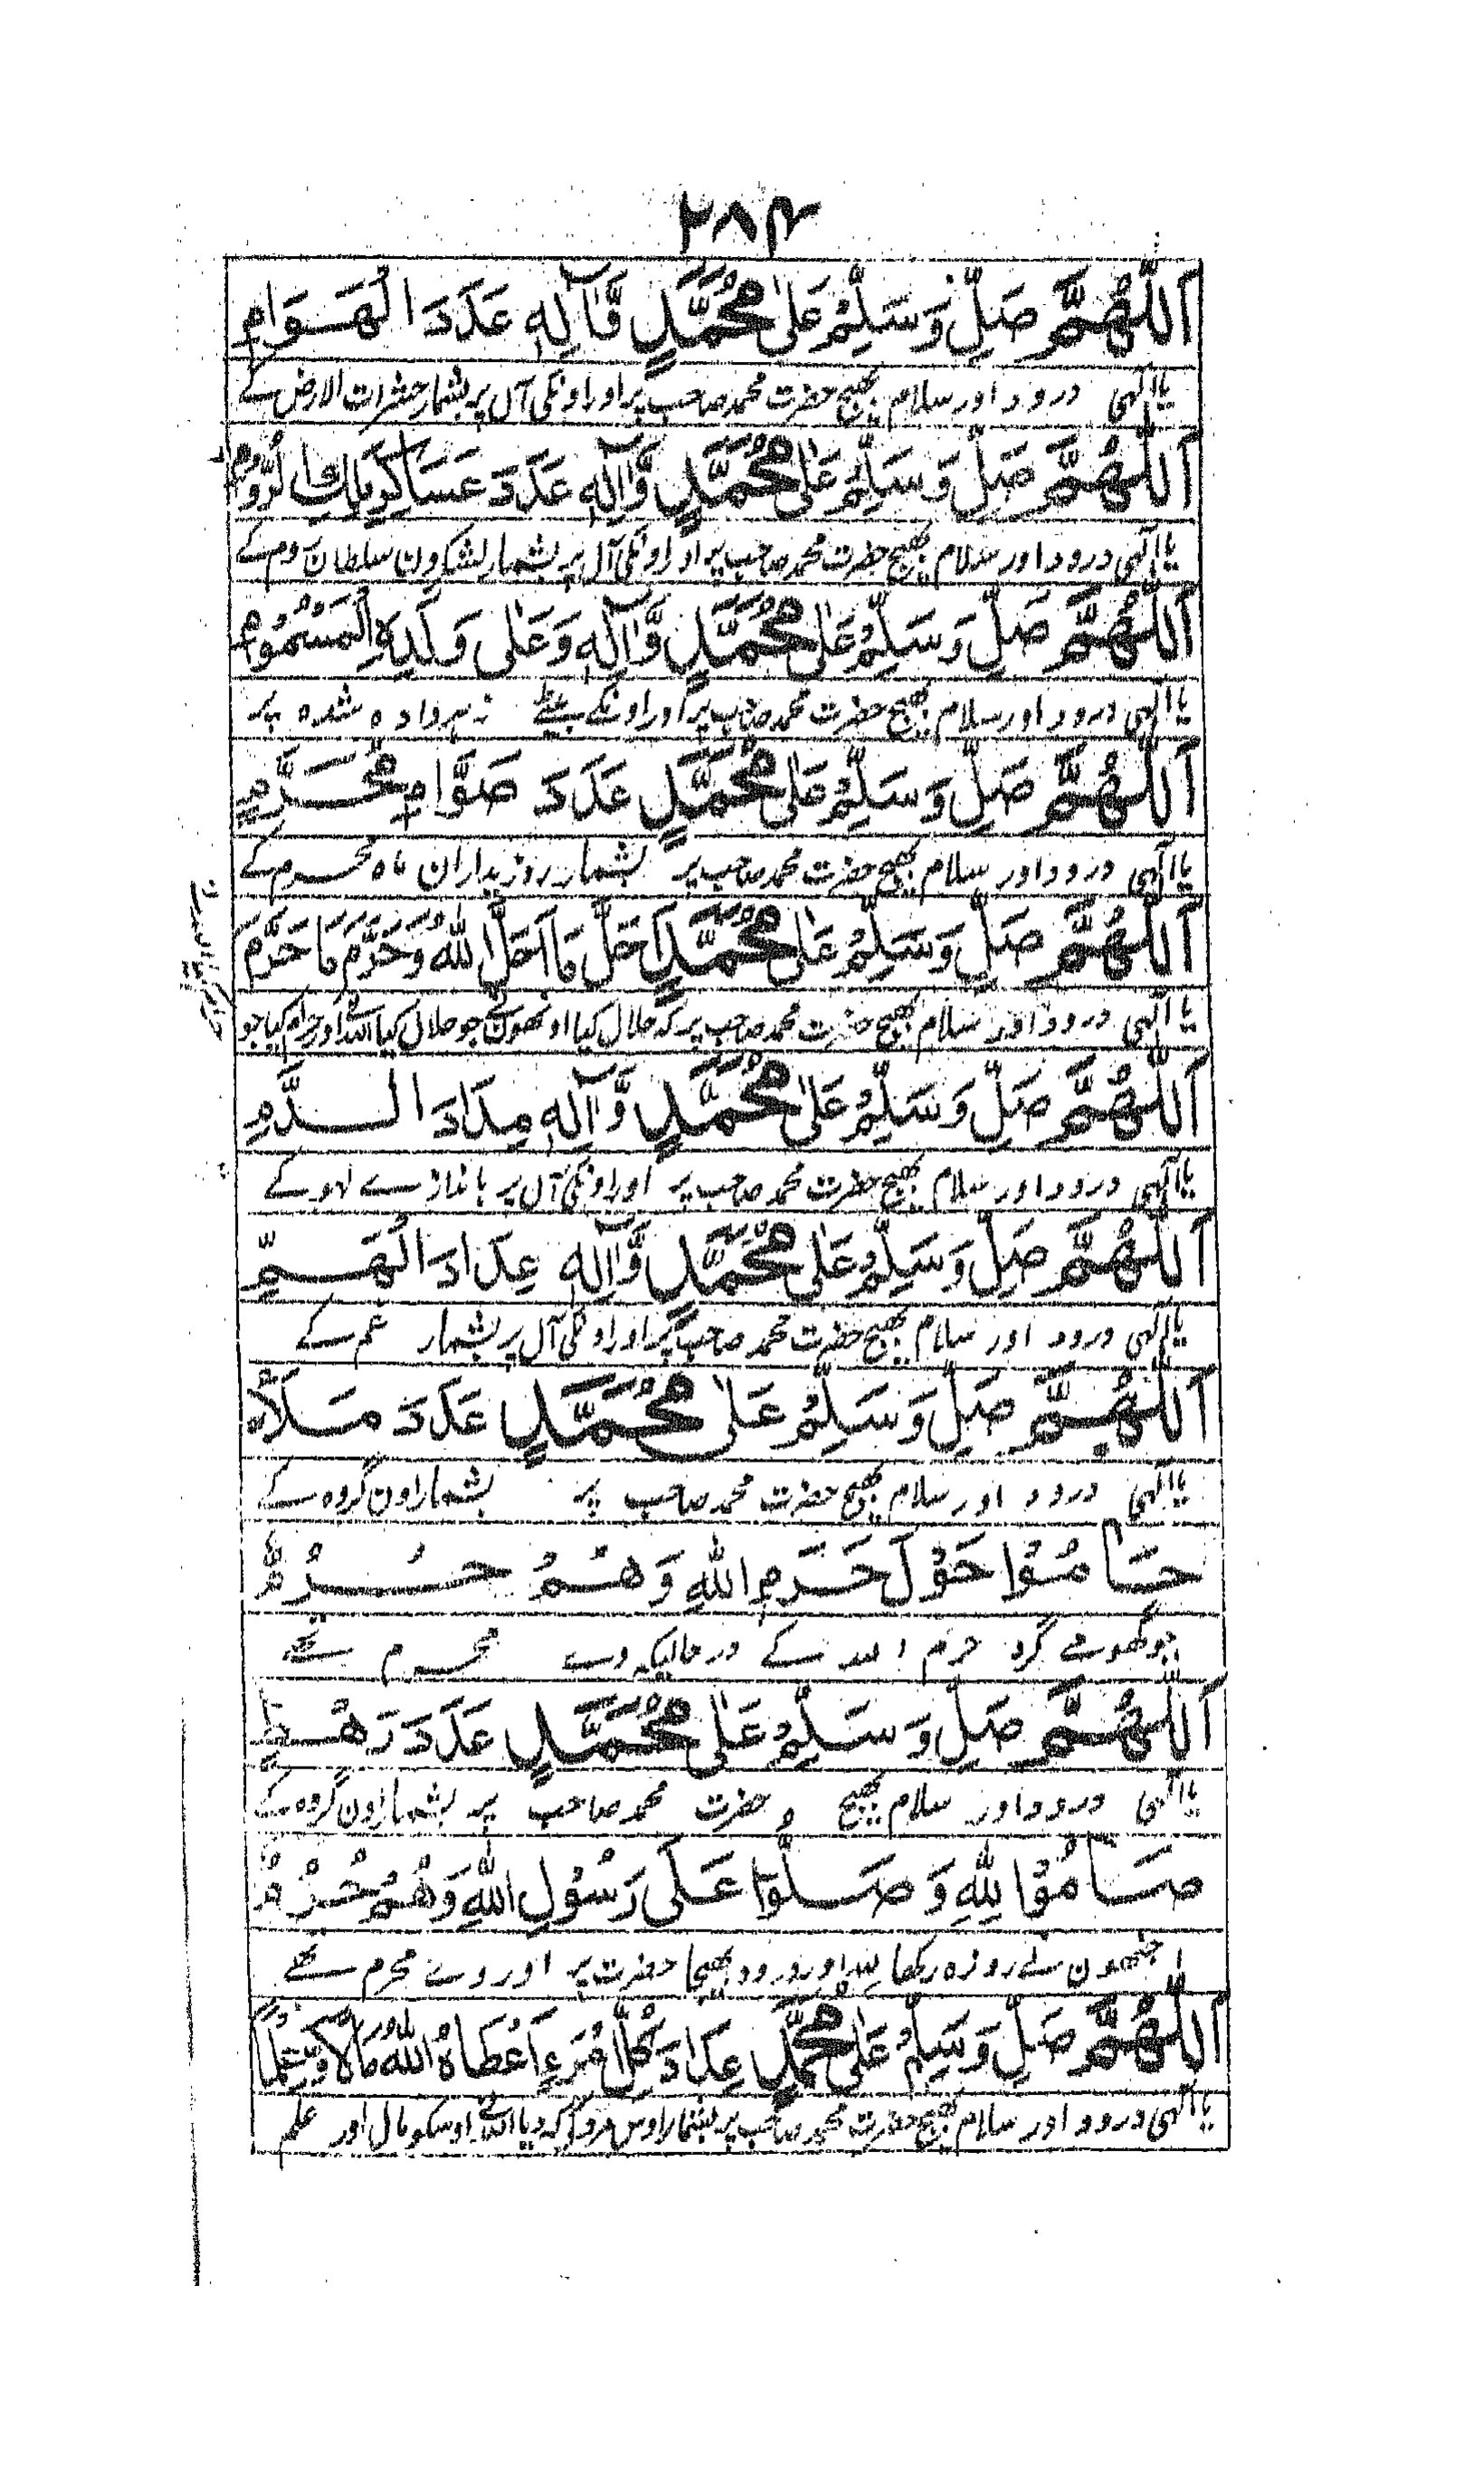 ۲۸۴
اَللّٰهُمَّ صَلِّ وَسَلِّمْ عَلٰى مُحَمَّدٍ وَّاٰلِهٖ عَدَدَ الْهَوَامِ
یا الٰہی درود اور سلام بھیج حضرت محمد صاحب پر اور اونکی آل پر بشمار حشرات الارض کے
اَللّٰهُمَّ صَلِّ وَسَلِّمْ عَلٰى مُحَمَّدٍ وَّاٰلِهٖ عَدَدَ عَسَاكِرِ مَلِكِ الرُّوْمِ
یا الٰہی درود اور سلام بھیج حضرت محمد صاحب پر اور اونکی آل پر بشمار لشکرون سلطان روم کے
اَللّٰهُمَّ صَلِّ وَسَلِّمْ عَلٰى مُحَمَّدٍ وَّاٰلِهٖ وَعَلٰى وَلَدِهِ الْمَسْمُوْمِ
یا الٰہی درود اور سلام بھیج حضرت محمد صاحب پر اور اونکے بیٹے زہر دادہ شدہ پر
اَللّٰهُمَّ صَلِّ وَسَلِّمْ عَلٰى مُحَمَّدٍ عَدَدَ صَوَّامِ مُحَرَّمٍ
یا الٰہی درود اور سلام بھیج حضرت محمد صاحب پر بشمار روزیداران ماہ محرم کے
اَللّٰهُمَّ صَلِّ وَسَلِّمْ عَلٰى مُحَمَّدٍ اَحَلَّ مَا اَحَلَّ اللّٰهُ وَحَرَّمَ مَا حَرَّمَ
یا الٰہی درود اور سلام بھیج حضرت محمد صاحب پر کہ حلال کیا اونھون نے جو حلال کیا اللہ نے اور حرام کیا جو
اَللّٰهُمَّ صَلِّ وَسَلِّمْ عَلٰى مُحَمَّدٍ وَّاٰلِهٖ مِدَادَ الدَّمِ
یا الٰہی درود اور سلام بھیج حضرت محمد صاحب پر اور اونکی آل پر باندازے لہو کے
اَللّٰهُمَّ صَلِّ وَسَلِّمْ عَلٰى مُحَمَّدٍ وَّاٰلِهٖ عِدَادَ الْهَمِّ
یا الٰہی درود اور سلام بھیج حضرت محمد صاحب پر اور اونکی آل پر بشمار غم کے
اَللّٰهُمَّ صَلِّ وَسَلِّمْ عَلٰى مُحَمَّدٍ عَدَدَ مَلَاءٍ
یا الٰہی درود اور سلام بھیج حضرت محمد صاحب پر بشمار اون گروہ کے
حَامُوْا حَوْلَ حَرَمِ اللّٰهِ وَهُمْ حُرُمٌ
جو گھومے گرد حرم اللہ کے در حالیکہ وے محرم تھے
اَللّٰهُمَّ صَلِّ وَسَلِّمْ عَلٰى مُحَمَّدٍ عَدَدَ رَهْطٍ
یا الٰہی درود اور سلام بھیج حضرت محمد صاحب پر بشمار اون گروہ کے
صَامُوْا لِلّٰهِ وَصَلَّوْا عَلٰى رَسُوْلِ اللّٰهِ وَهُمْ حُرُمٌ
جنھون نے روزہ رکھا للہ اور درود بھیجا حضرت پر اور وے محرم تھے
اَللّٰهُمَّ صَلِّ وَسَلِّمْ عَلٰى مُحَمَّدٍ عِدَادَ كُلِّ امْرَءٍ اَعْطَاهُ اللّٰهُ مَالًا وَّعِلْمًا
یا الٰہی درود اور سلام بھیج حضرت محمد صاحب پر بشمار اوس مرد کہ دیا اللہ نے اوسکو مال اور علم